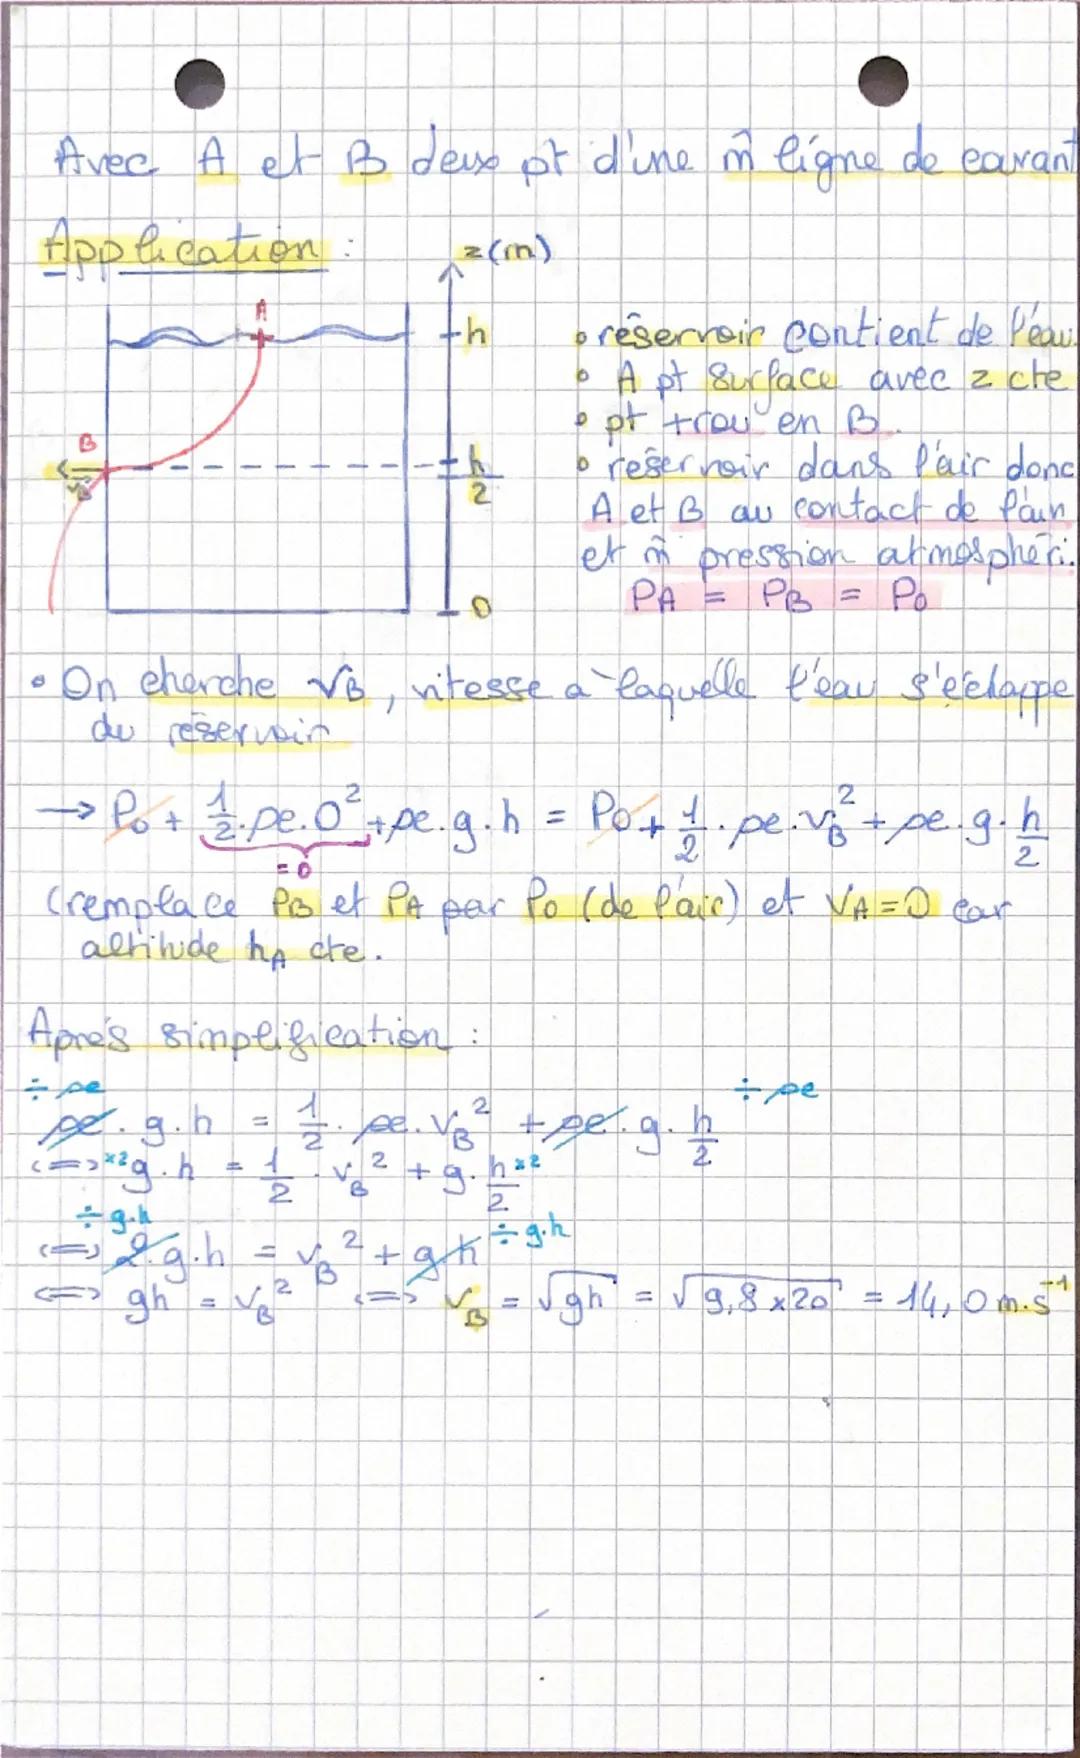 Avec A et B deux pt d'une m̂ ligne de courant
Application :
z(m)
A
h
B
v_B
h/2
0
• réservoir contient de l'eau.
• A pt surface avec z cte
• pt trou en B.
• réservoir dans l'air donc
A et B au contact de l'air
et m̂ pression atmosphéri.
PA = PB = P0
• On cherche vB, vitesse à laquelle l'eau s'échappe
du réservoir
→ P0 + 1/2 . ρe . 0² + ρe . g . h = P0 + 1/2 . ρe . vB² + ρe . g . h/2
= 0
(remplace PB et PA par P0 (de l'air) et VA = 0 car
altitude hA cte.
Après simplification :
÷ ρe ÷ ρe
ρe . g . h = 1/2 . ρe . vB² + ρe . g . h/2
<=> ×2 g . h = 1/2 . vB² + g . h/2 ×2
÷ g.h ÷ g.h
<=> 2 . g . h = vB² + gh
<=> gh = vB² <=> vB = √gh = √9,8 × 20 = 14,0 m.s⁻¹